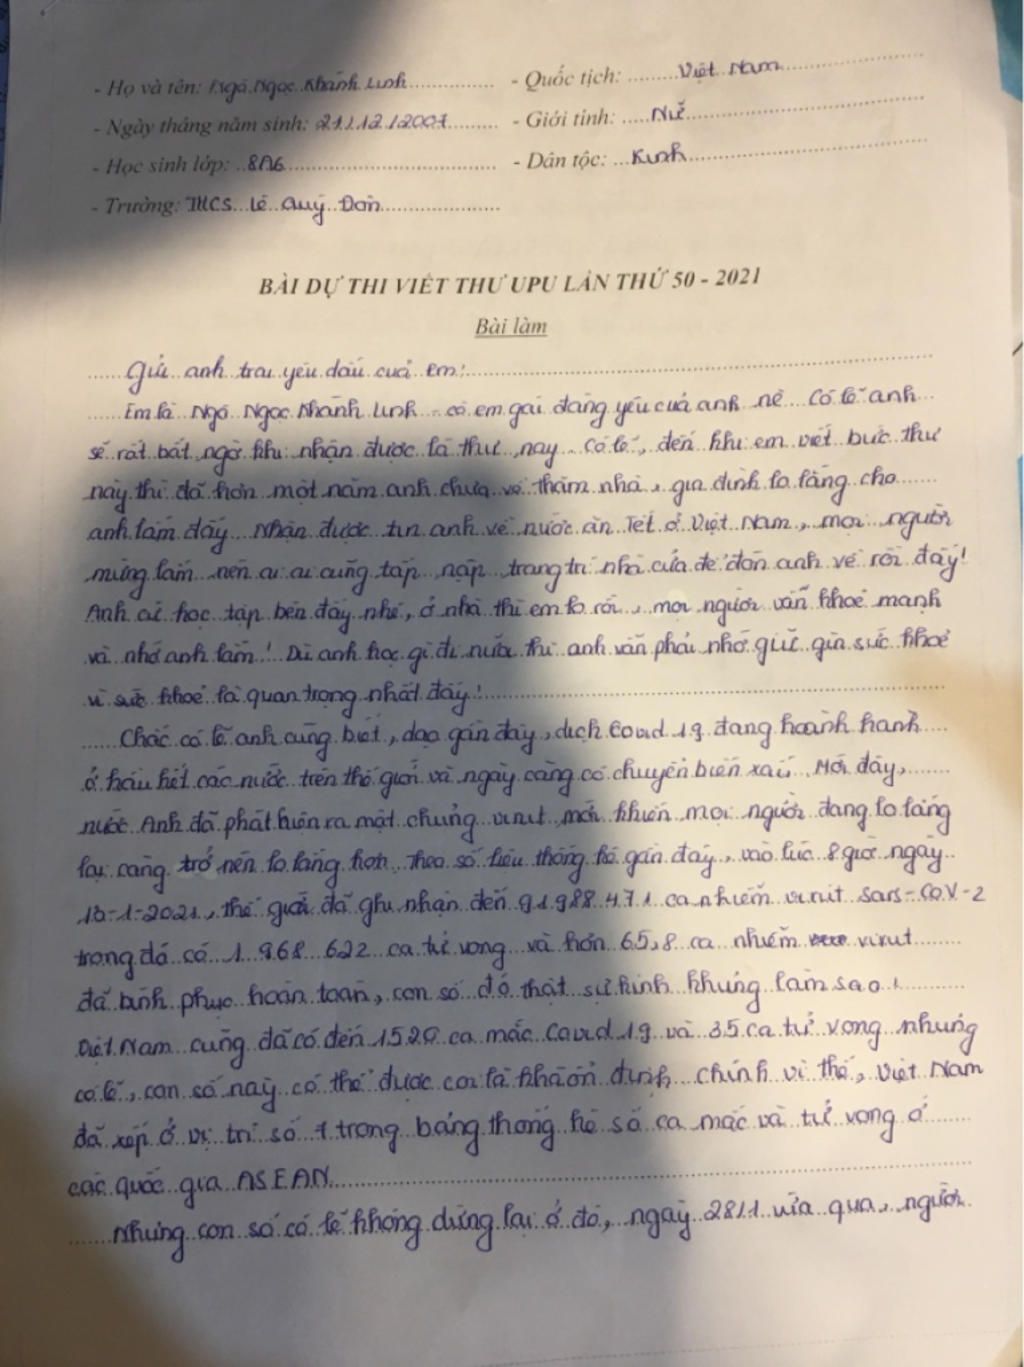 - Họ và tên: Ngô Ngọc Khánh Linh - Quốc tịch: Việt Nam
- Ngày tháng năm sinh: 21/12/2007 - Giới tính: Nữ
- Học sinh lớp: 8A6 - Dân tộc: Kinh
- Trường: THCS Lê Quý Đôn
BÀI DỰ THI VIẾT THƯ UPU LẦN THỨ 50 - 2021
Bài làm
Gửi anh trai yêu dấu của em!
Em là Ngô Ngọc Khánh Linh - cô em gái đáng yêu của anh nè. Có lẽ anh
sẽ rất bất ngờ khi nhận được lá thư này. Có lẽ, đến khi em viết bức thư
này thì đã hơn một năm anh chưa về thăm nhà, gia đình lo lắng cho
anh lắm đấy. Nhận được tin anh về nước ăn Tết ở Việt Nam, mọi người
mừng lắm nên ai ai cũng tấp nập trang trí nhà cửa để đón anh về rồi đấy!
Anh cứ học tập bên đấy nhé, ở nhà thì em lo rồi, mọi người vẫn khoẻ mạnh
và nhớ anh lắm! Dù anh học gì đi nữa thì anh vẫn phải nhớ giữ gìn sức khoẻ
vì sức khoẻ là quan trọng nhất đấy!
Chắc có lẽ anh cũng biết, dạo gần đây, dịch Covid 19 đang hoành hành
ở hầu hết các nước trên thế giới và ngày càng có chuyển biến xấu. Mới đây,
nước Anh đã phát hiện ra một chủng virut mới khiến mọi người đang lo lắng
lại càng trở nên lo lắng hơn. Theo số liệu thống kê gần đây, vào lúc 8 giờ ngày
13-1-2021, thế giới đã ghi nhận đến 91 988 471 ca nhiễm virut Sars-CoV-2
trong đó có 1 968 622 ca tử vong và hơn 65,8 ca nhiễm virut
đã bình phục hoàn toàn, con số đó thật sự kinh khủng làm sao!
Việt Nam cũng đã có đến 1520 ca mắc Covid 19 và 35 ca tử vong nhưng
có lẽ, con số này có thể được coi là khá ổn định chính vì thế, Việt Nam
đã xếp ở vị trí số 7 trong bảng thống kê số ca mắc và tử vong ở
các quốc gia ASEAN.
Nhưng con số có lẽ không dừng lại ở đó, ngày 28/1 vừa qua, người